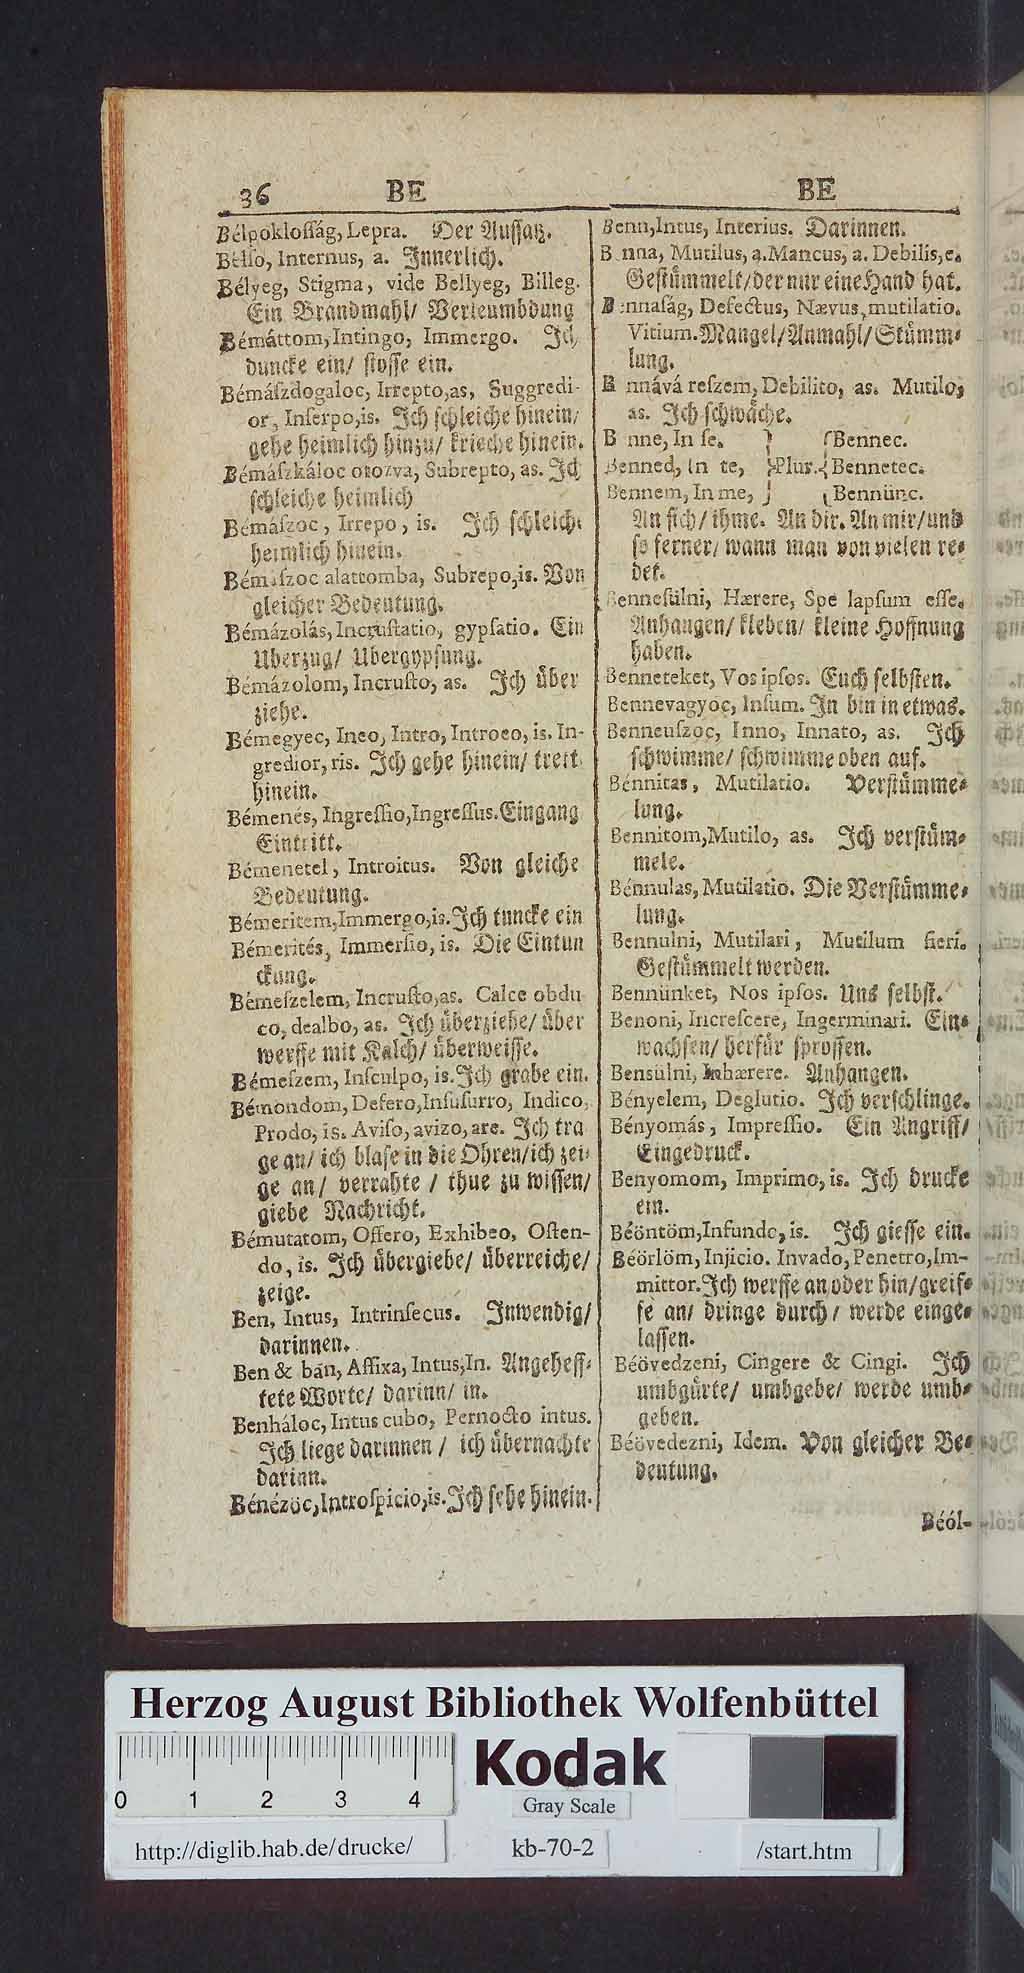 36 BE BE
Bélpoklosſág, Lepra. Der Auſſatz.
Bélſo, Internus, a. Innerlich.
Bélyeg, Stigma, vide Bellyeg, Billeg.
Ein Brandmahl/ Verleumbdung
Bémáttom, Intingo, Immergo. Ich
duncke ein/ ſtoſſe ein.
Bémáſzdogaloc, Irrepto, as, Suggredi-
or, Inſerpo, is. Ich ſchleiche hinein/
gehe heimlich hinzu/ krieche hinein.
Bémáſzkáloc otozva, Subrepto, as. Ich
ſchleiche heimlich
Bémáſzoc, Irrepo, is. Ich ſchleiche
heimlich hinein.
Bémaſzoc alattomba, Subrepo, is. Von
gleicher Bedeutung.
Bémázolás, Incruſtatio, gypſatio. Ein
Uberzug/ Ubergypſung.
Bémázolom, Incruſto, as. Ich über
ziehe.
Bémegyec, Ineo, Intro, Introeo, is. In-
gredior, ris. Ich gehe hinein/ trett
hinein.
Bémenés, Ingreſſio, Ingreſſus. Eingang
Eintritt.
Bémenetel, Introitus. Von gleiche
Bedeutung.
Bémeritem, Immergo, is. Ich tuncke ein
Bémerités, Immerſio, is. Die Eintun
ckung.
Bémeſzelem, Incruſto, as. Calce obdu
co, dealbo, as. Ich überziehe/ über
werffe mit Kalch/ überweiſſe.
Bémeſzem, Inſculpo, is. Ich grabe ein.
Bémondom, Defero, Inſuſurro, Indico,
Prodo, is. Aviſo, avizo, are. Ich tra
ge an/ ich blaſe in die Ohren/ ich zei-
ge an/ verrahte / thue zu wiſſen/
giebe Nachricht.
Bémutatom, Offero, Exhibeo, Oſten-
do, is. Ich übergiebe/ überreiche/
zeige.
Ben, Intus, Intrinſecus. Inwendig/
darinnen.
Ben & bán, Affixa, Intus, In. Angeheff-
tete Worte/ darinn/ in.
Benháloc, Intus cubo, Pernocto intus.
Ich liege darinnen / ich übernachte
darinn.
Bénézöc, Introſpicio, is. Ich ſehe hinein.
Benn, Intus, Interius. Darinnen.
B nna, Mutilus, a. Mancus, a. Debilis, e.
Geſtümmelt/ der nur eine Hand hat.
Bennaſág, Defectus, Nævus, mutilatio.
Vitium. Mangel/ Anmahl/ Stümm-
lung.
B nnává reſzem, Debilito, as. Mutilo,
as. Ich ſchwäche.
B nne, In ſe. } {Bennec.
Benned, In te, }Plur.{ Bennetec.
Bennem, In me, } { Bennünc.
An ſich/ ihme. An dir. An mir/ und
ſo ferner/ wann man von vielen re-
det.
Benneſülni, Hærere, Spe lapſum eſſe.
Anhangen/ kleben/ kleine Hoffnung
haben.
Benneteket, Vos ipſos. Euch ſelbſten.
Bennevagyoc, Inſum. In bin in etwas.
Benneuſzoc, Inno, Innato, as. Ich
ſchwimme/ ſchwimme oben auf.
Bénnitas, Mutilatio. Verſtümme-
lung.
Bennitom, Mutilo, as. Ich verſtüm-
mele.
Bénnulas, Mutilatio. Die Verſtümme-
lung.
Bennulni, Mutilari, Mutilum fieri.
Geſtümmelt werden.
Bennünket, Nos ipſos. Uns ſelbſt.
Benoni, Increſcere, Ingerminari. Ein-
wachſen/ herfür ſproſſen.
Bensülni, Inhærere. Anhangen.
Bényelem, Deglutio. Ich verſchlinge.
Bényomás, Impreſſio. Ein Angriff/
Eingedruck.
Benyomom, Imprimo, is. Ich drucke
ein.
Béöntöm, Infundo, is. Ich gieſſe ein.
Béörlöm, Injicio. Invado, Penetro, Im-
mittor. Ich werffe an oder hin/ greif-
fe an/ dringe durch/ werde einge-
laſſen.
Béövedzeni, Cingere & Cingi. Ich
umbgürte/ umbgebe/ werde umb-
geben.
Béövedezni, Idem. Von gleicher Be-
deutung.
Béól-
Herzog August Bibliothek Wolfenbüttel
Kodak
Gray Scale
0 1 2 3 4
http://diglib.hab.de/drucke/ kb-70-2 /start.htm